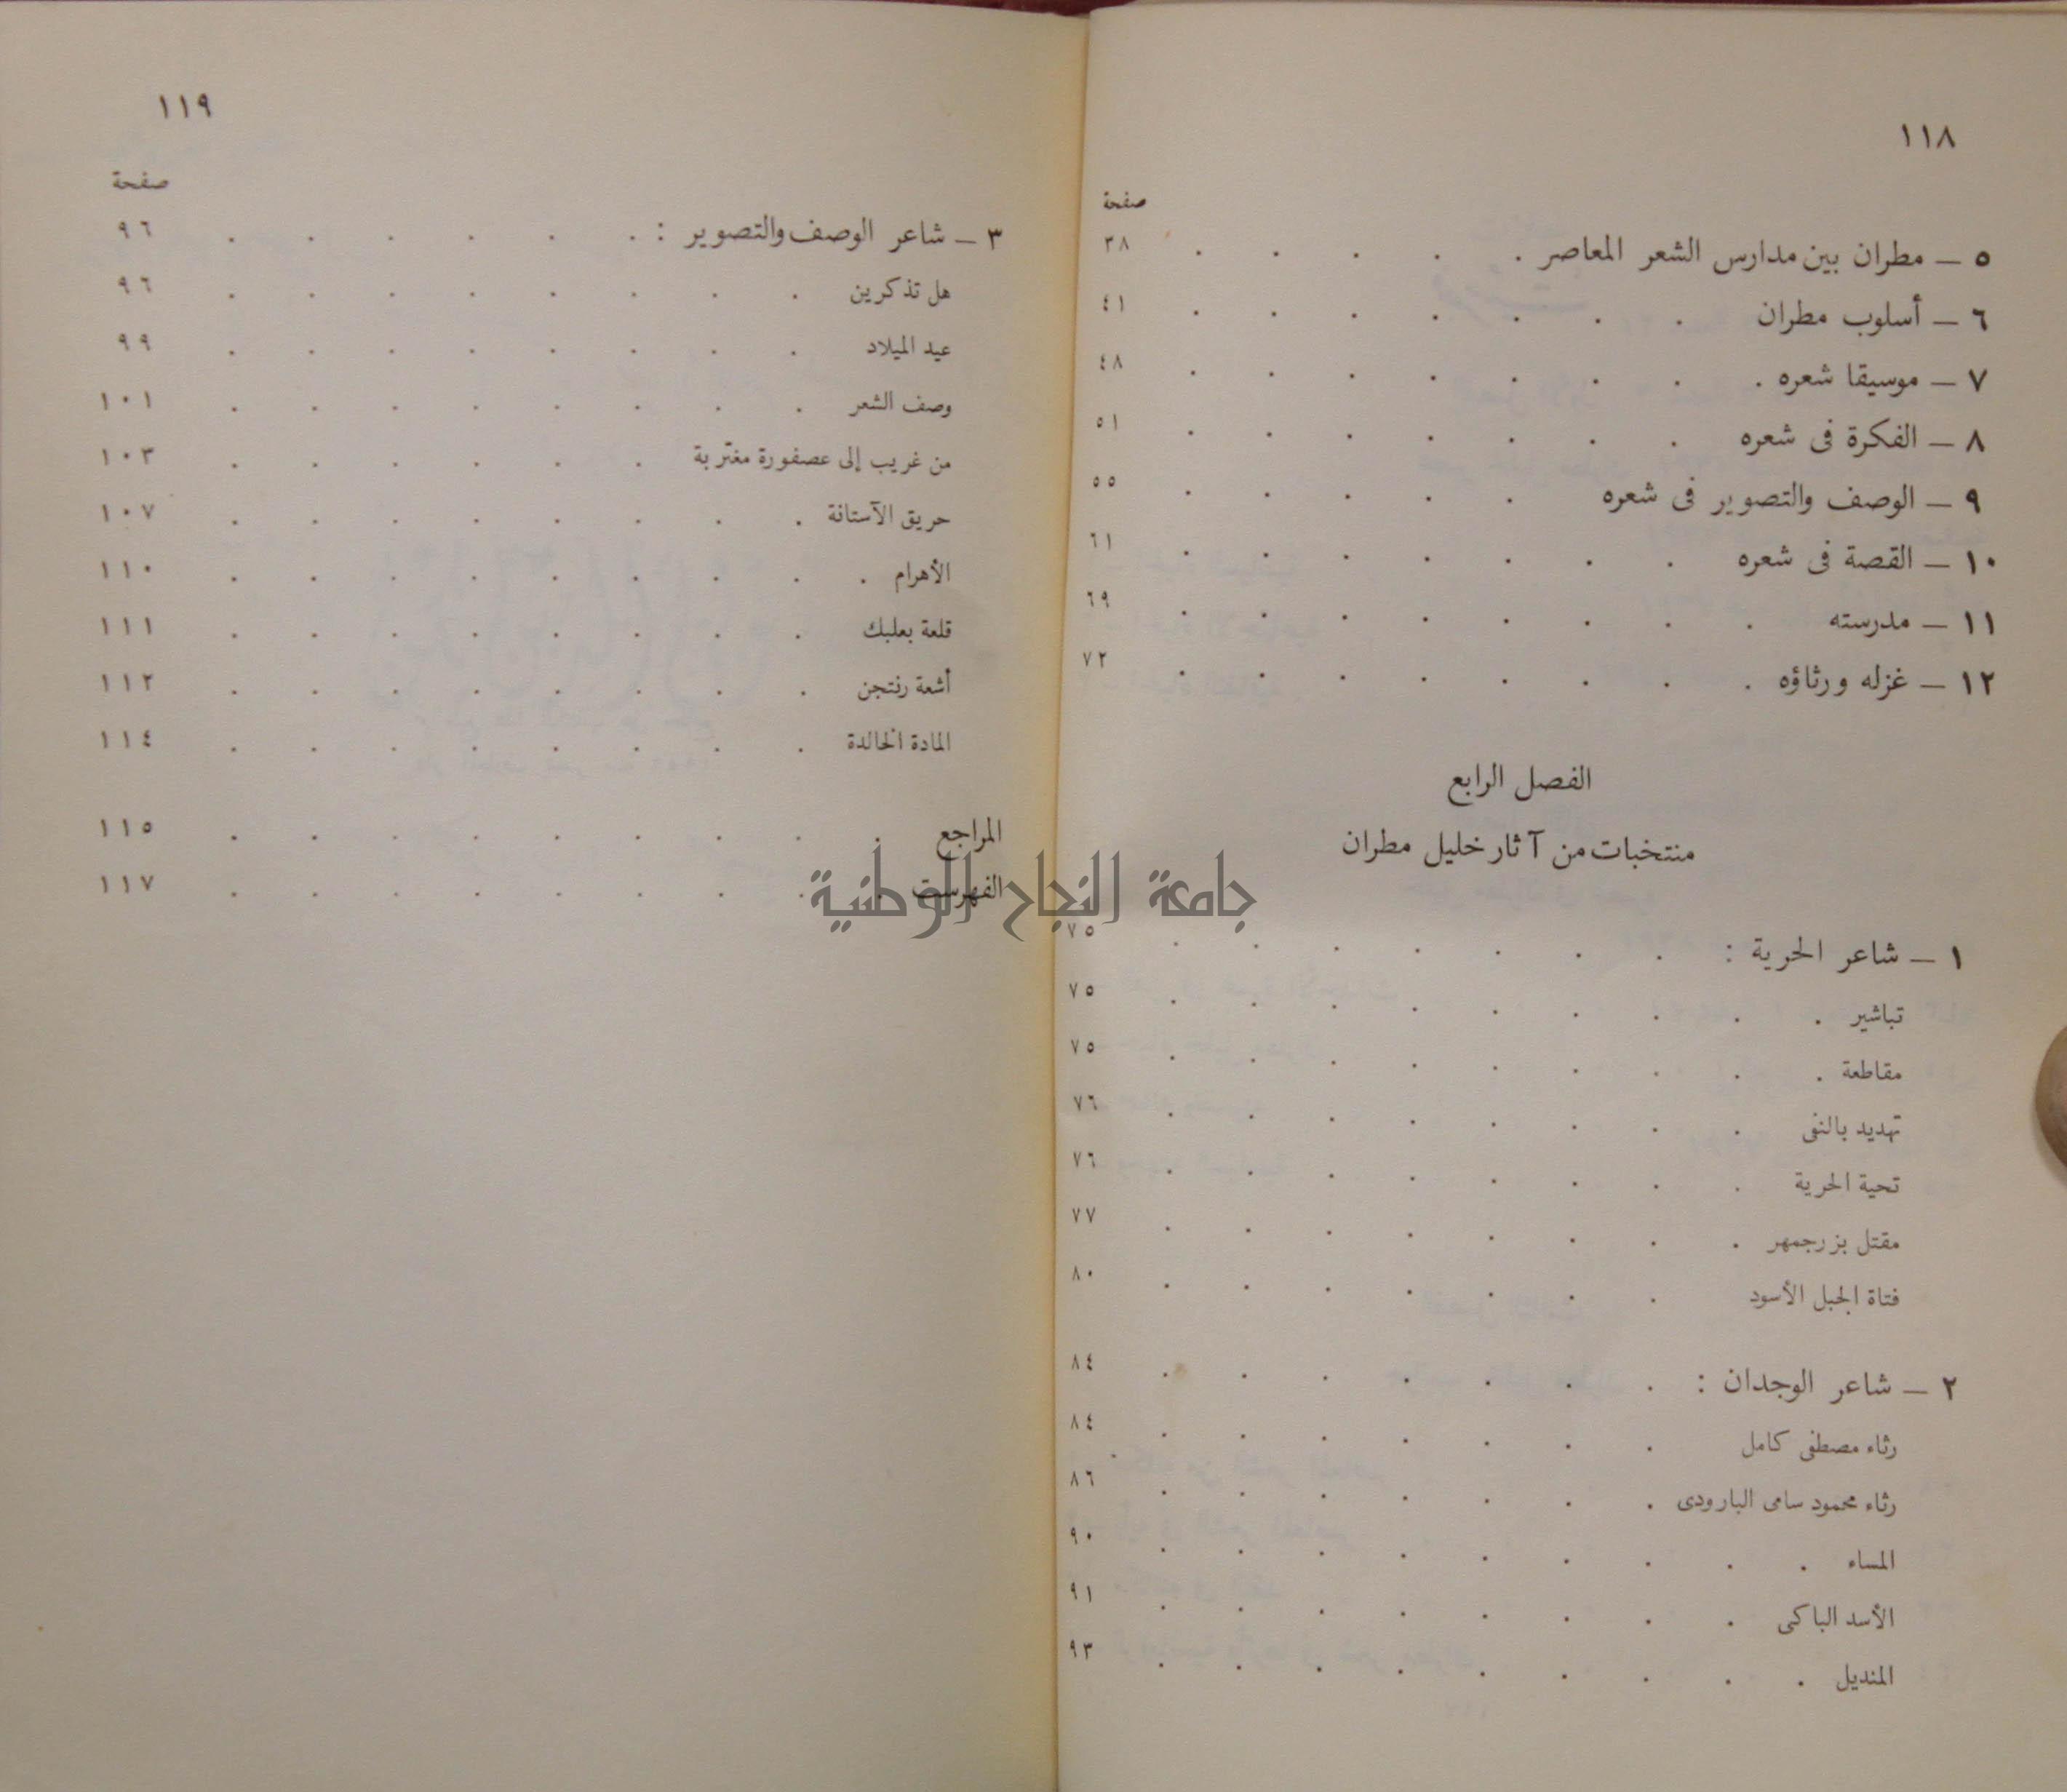 ١١٨
صفحة
٥ – مطران بين مدارس الشعر المعاصر . . . . . ٣٨
٦ – أسلوب مطران . . . . . . . ٤١
٧ – موسيقا شعره . . . . . . . . ٤٨
٨ – الفكرة فى شعره . . . . . . . ٥١
٩ – الوصف والتصوير فى شعره . . . . . ٥٥
١٠ – القصة فى شعره . . . . . . . ٦١
١١ – مدرسته . . . . . . . . ٦٩
١٢ – غزله ورثاؤه . . . . . . . . ٧٢
الفصل الرابع
منتخبات من آثار خليل مطران
١ – شاعر الحرية : . . . . . . . ٧٥
تباشير . . . . . . . . . ٧٥
مقاطعة . . . . . . . . . ٧٥
تهديد بالنفى . . . . . . . . ٧٦
تحية الحرية . . . . . . . . ٧٦
مقتل بزرجمهر . . . . . . . . ٧٧
فتاة الجبل الأسود . . . . . . . ٨٠
٢ – شاعر الوجدان : . . . . . . . ٨٤
رثاء مصطفى كامل . . . . . . . ٨٤
رثاء محمود سامى البارودى . . . . . . . ٨٦
المساء . . . . . . . . . ٩٠
الأسد الباكى . . . . . . . . ٩١
المنديل . . . . . . . . . ٩٣
١١٩
صفحة
٣ – شاعر الوصف والتصوير : . . . . . . ٩٦
هل تذكرين . . . . . . . . ٩٦
عيد الميلاد . . . . . . . . ٩٩
وصف الشعر . . . . . . . . ١٠١
من غريب إلى عصفورة مغتربة . . . . . . ١٠٣
حريق الآستانة . . . . . . . . ١٠٧
الأهرام . . . . . . . . . ١١٠
قلعة بعلبك . . . . . . . . ١١١
أشعة رنتجن . . . . . . . . ١١٢
المادة الخالدة . . . . . . . . ١١٤
المراجع . . . . . . . . . ١١٥
الفهرست . . . . . . . . . ١١٧
جامعة النجاح الوطنية